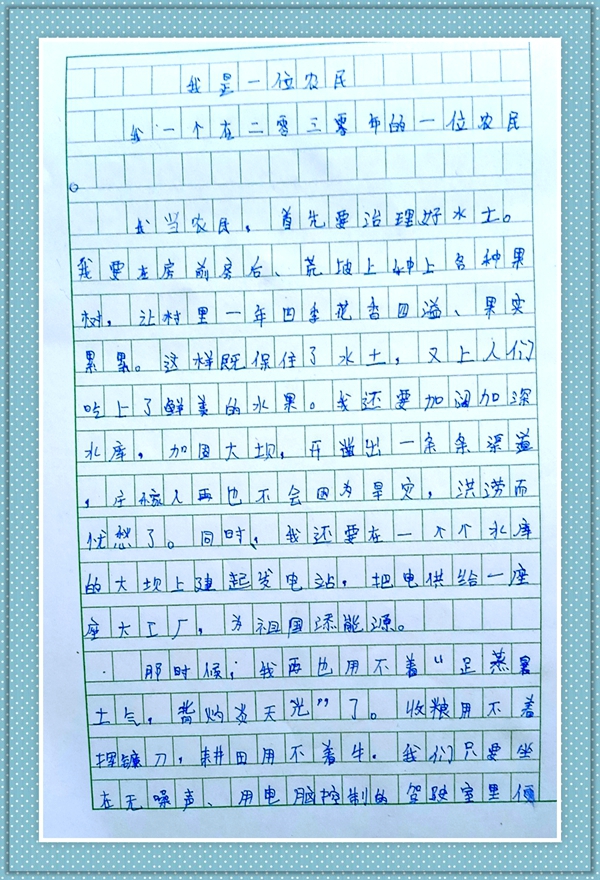 我是一位农民
我一个在二零三零年的一位农民
。
我当农民，首先要治理好水土。
我要在房前房后、荒坡上种上各种果
树，让村里一年四季花香四溢、果实
累累。这样既保住了水土，又上人们
吃上了鲜美的水果。我还要加阔加深
水库，加固大坝，开凿出一条条渠道
，庄稼人再也不会因为旱灾，洪涝而
忧愁了。同时，我还要在一个个水库
的大坝上建起发电站，把电供给一座
座大工厂，为祖国添能源。
那时候；我再也用不着“足蒸暑
土气，背灼炎天光”了。收粮用不着
挥镰刀，耕田用不着牛．我们只要坐
在无噪声、用电脑控制的驾驶室里便